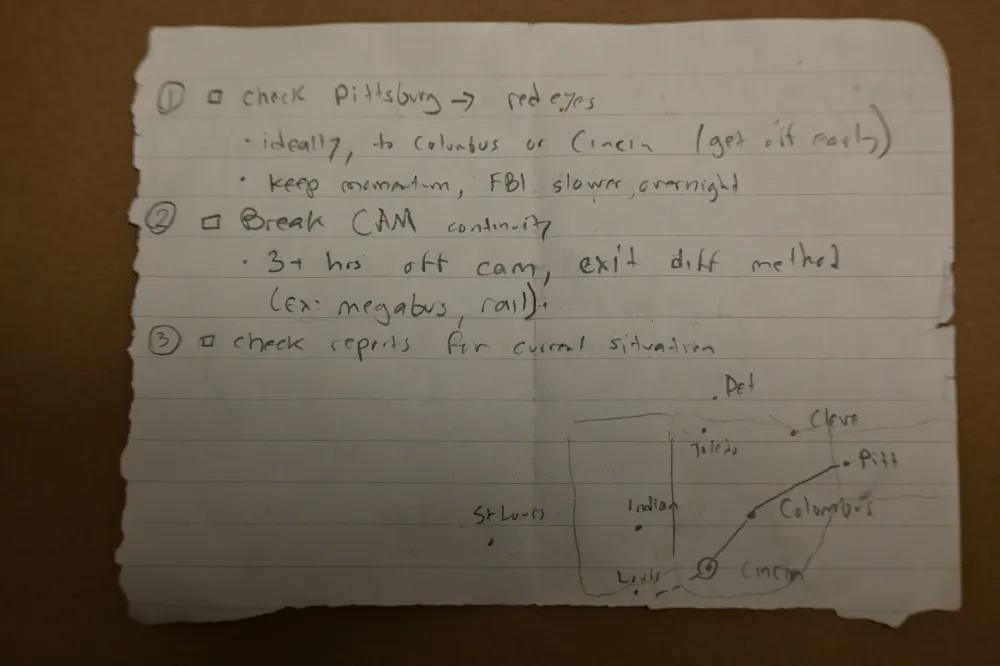 ① □ check Pittsburg → red eyes
· ideally, to Columbus or Cincin (get off early)
· keep momentum, FBI slower overnight
② □ Break CAM continuity
· 3+ hrs off cam, exit diff method
(ex: megabus, rail).
③ □ check reports for current situation
Det
Cleve
Toledo
Pitt
Indian
Columbus
St Louis
Louis
Cincin